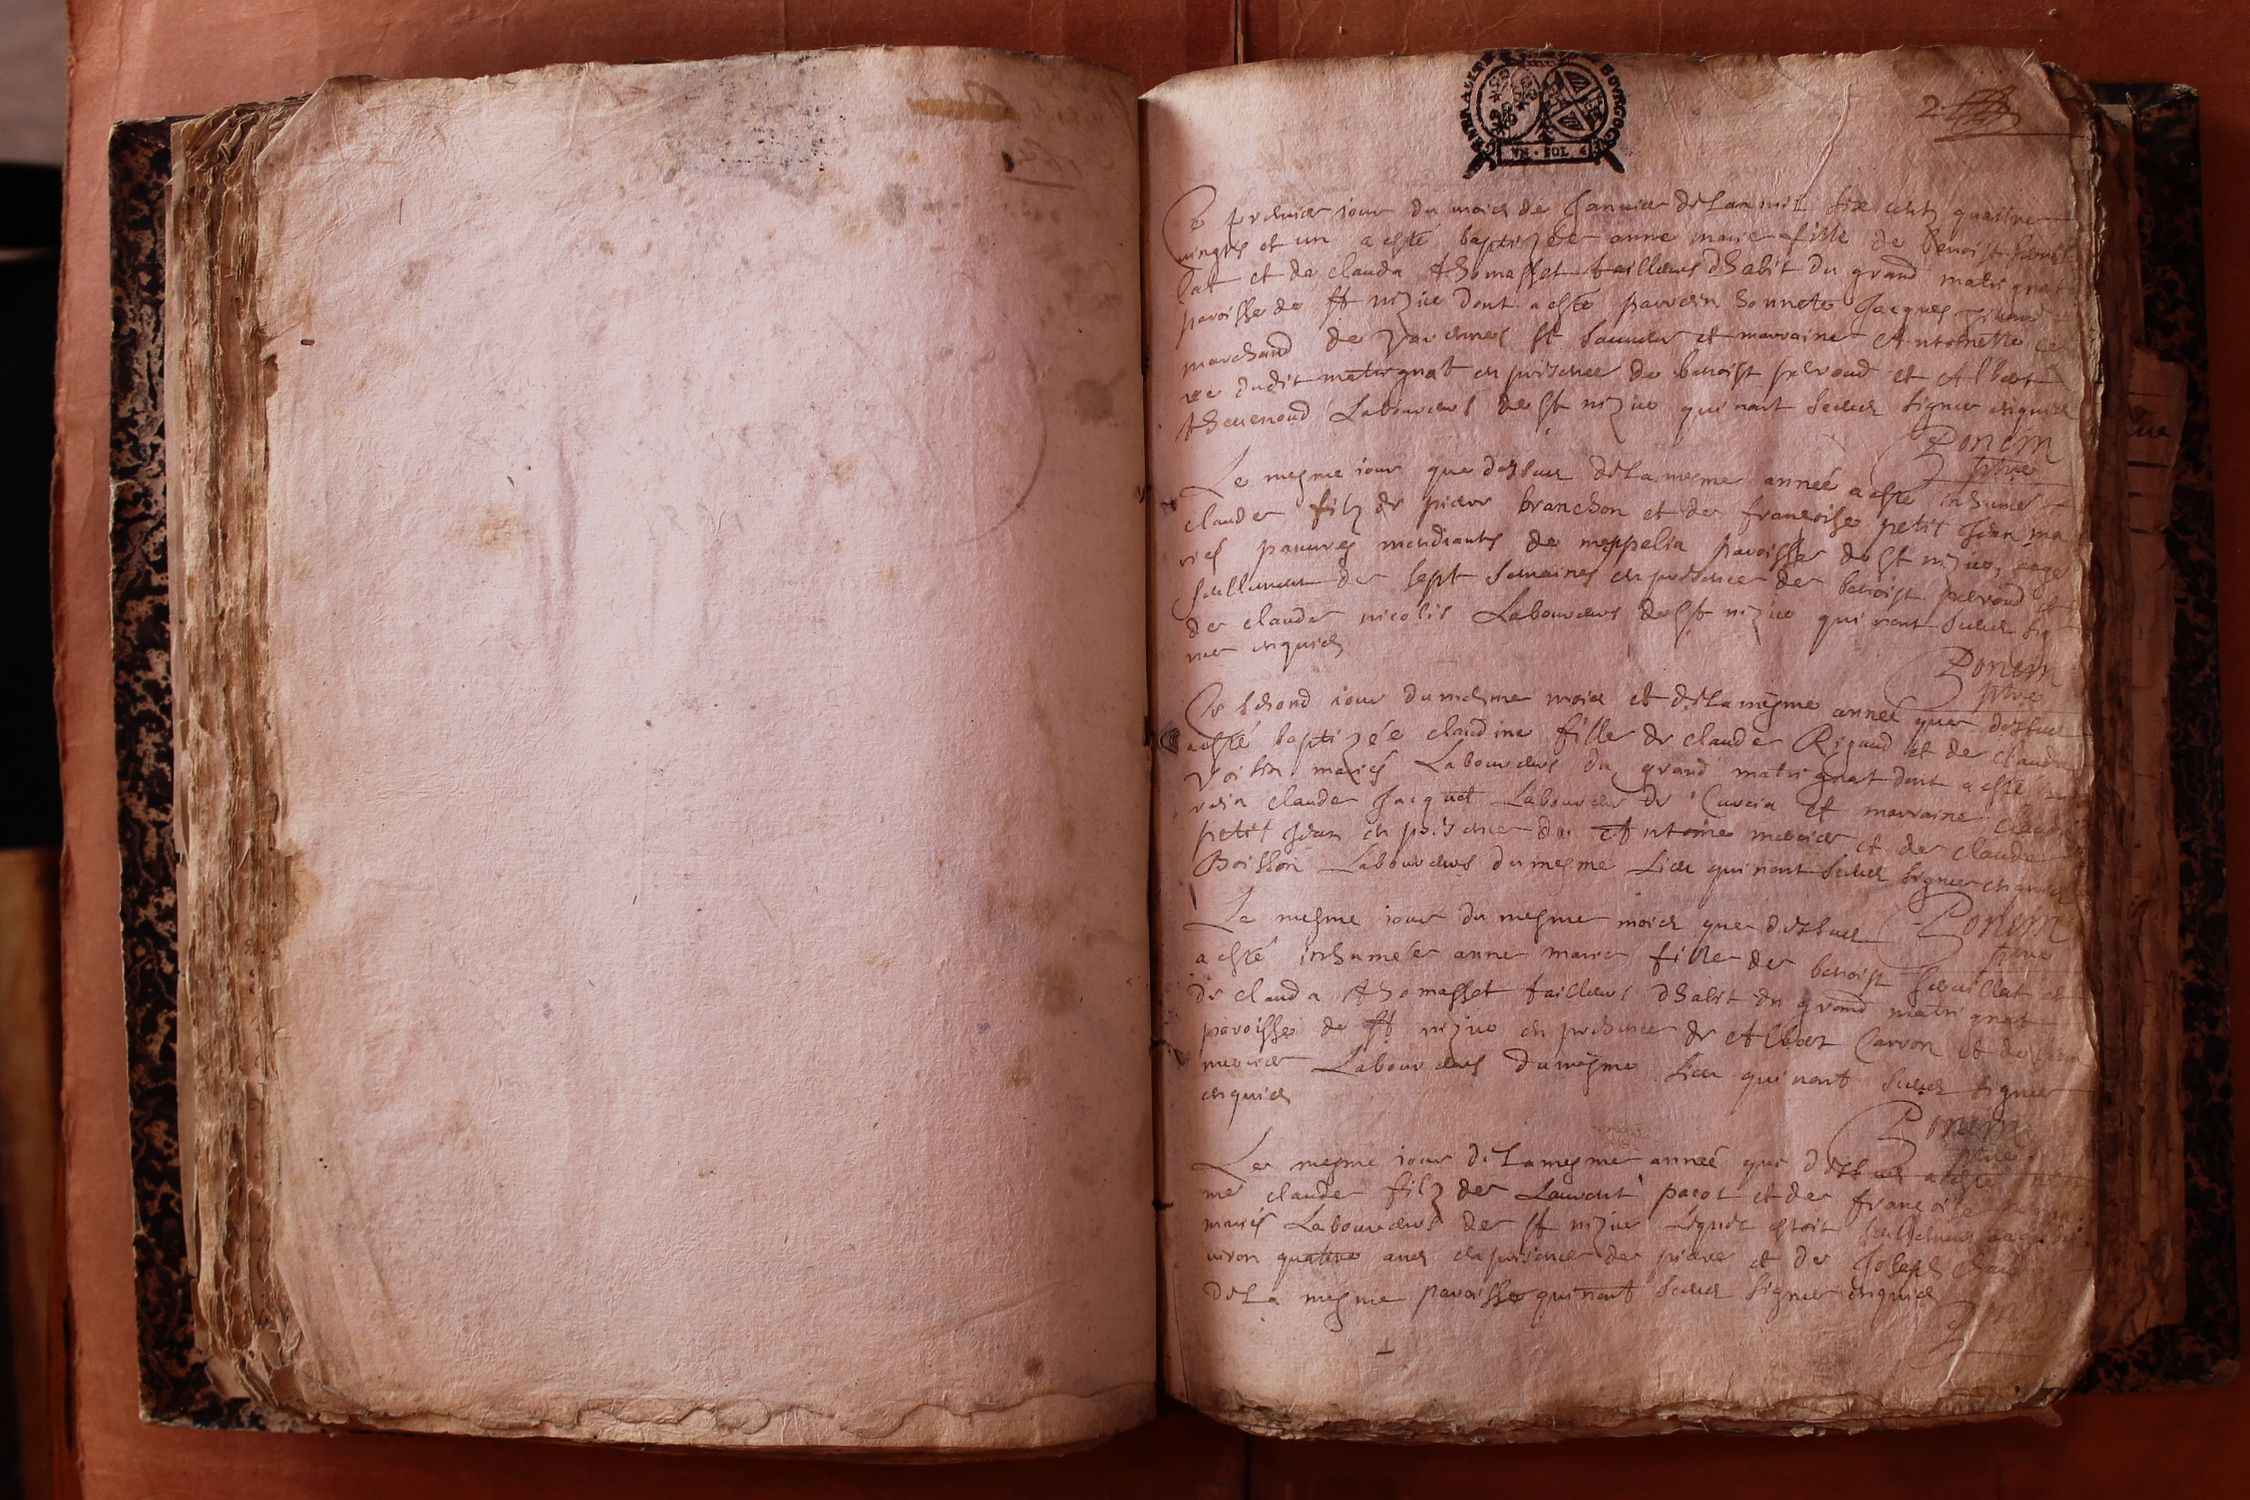 GNERALITE BOVRGOGNE
VN · SOL
2
Ce premier iour du mois de Januier de Lan mil six centz quattre
vingts et un a esté baptizée anne marie fille de benoist
et de clauda thomasset tailleurs dhabit du grand matrignat
paroisse de st nizier dont a esté parrain honnete Jacques
marchand de Varennes st Sauueur et marraine Antoinette
dudit matrignat en presence de benoist perroud et Albert
theuenoud Laboureurs de st nizier qui nont sceus signer enquis
Ponem
ptre
Le mesme iour que dessus de La mesme anneé a esté inhumé
claude filz de piere branchon et de francoise petit Jean ma
riés pauures mendiants de meppelia paroisse de st nizier, aagé
seullement de sept semaines en presence de benoist perroud et
de claude nicolis Laboureurs de st nizier qui nont sceus sig
ner enquis
Ponem
ptre
Ce second iour du mesme mois et de La mesme anneé que dessus
a esté baptizéé claudine fille de claude Rigaud et de clauda
Voisin mariés Laboureurs du grand matrignat dont a esté
rain claude Jacquet Laboureur de Curcia et marraine
petit Jean en presence de Antoine mercier et de claude
Boisson Laboureurs du mesme Lieu qui nont sceus signer enquis
Ponem
ptre
Le mesme iour du mesme mois que dessus
a esté inhuméé anne marie fille de benoist et
de clauda thomasset tailleurs dhabit du grand matrignat
paroisse de st nizier en presence de Albert Carron et de
mercier Laboureurs du mesme Lieu qui nont sceus signer
enquis
Ponem
ptre
Le mesme iour de La mesme anneé que dessus a esté
mé claude filz de Laurent pacot et de francoise
mariés Laboureurs de st nizier Lequel estoit seullement aagé
uiron quattre ans en presence de piere et de Joseph
de La mesme paroisse qui nont sceus signer enquis